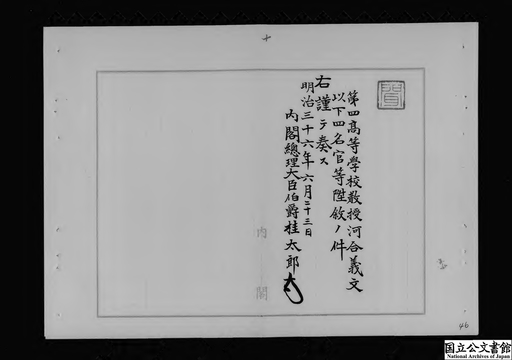 第四高等學校教授河合義文
以下四名官等陞敘ノ件
右謹テ奏ス
明治三十六年六月二十三日
內閣總理大臣伯爵桂太郎
內閣
46
国立公文書館
National Archives of Japan